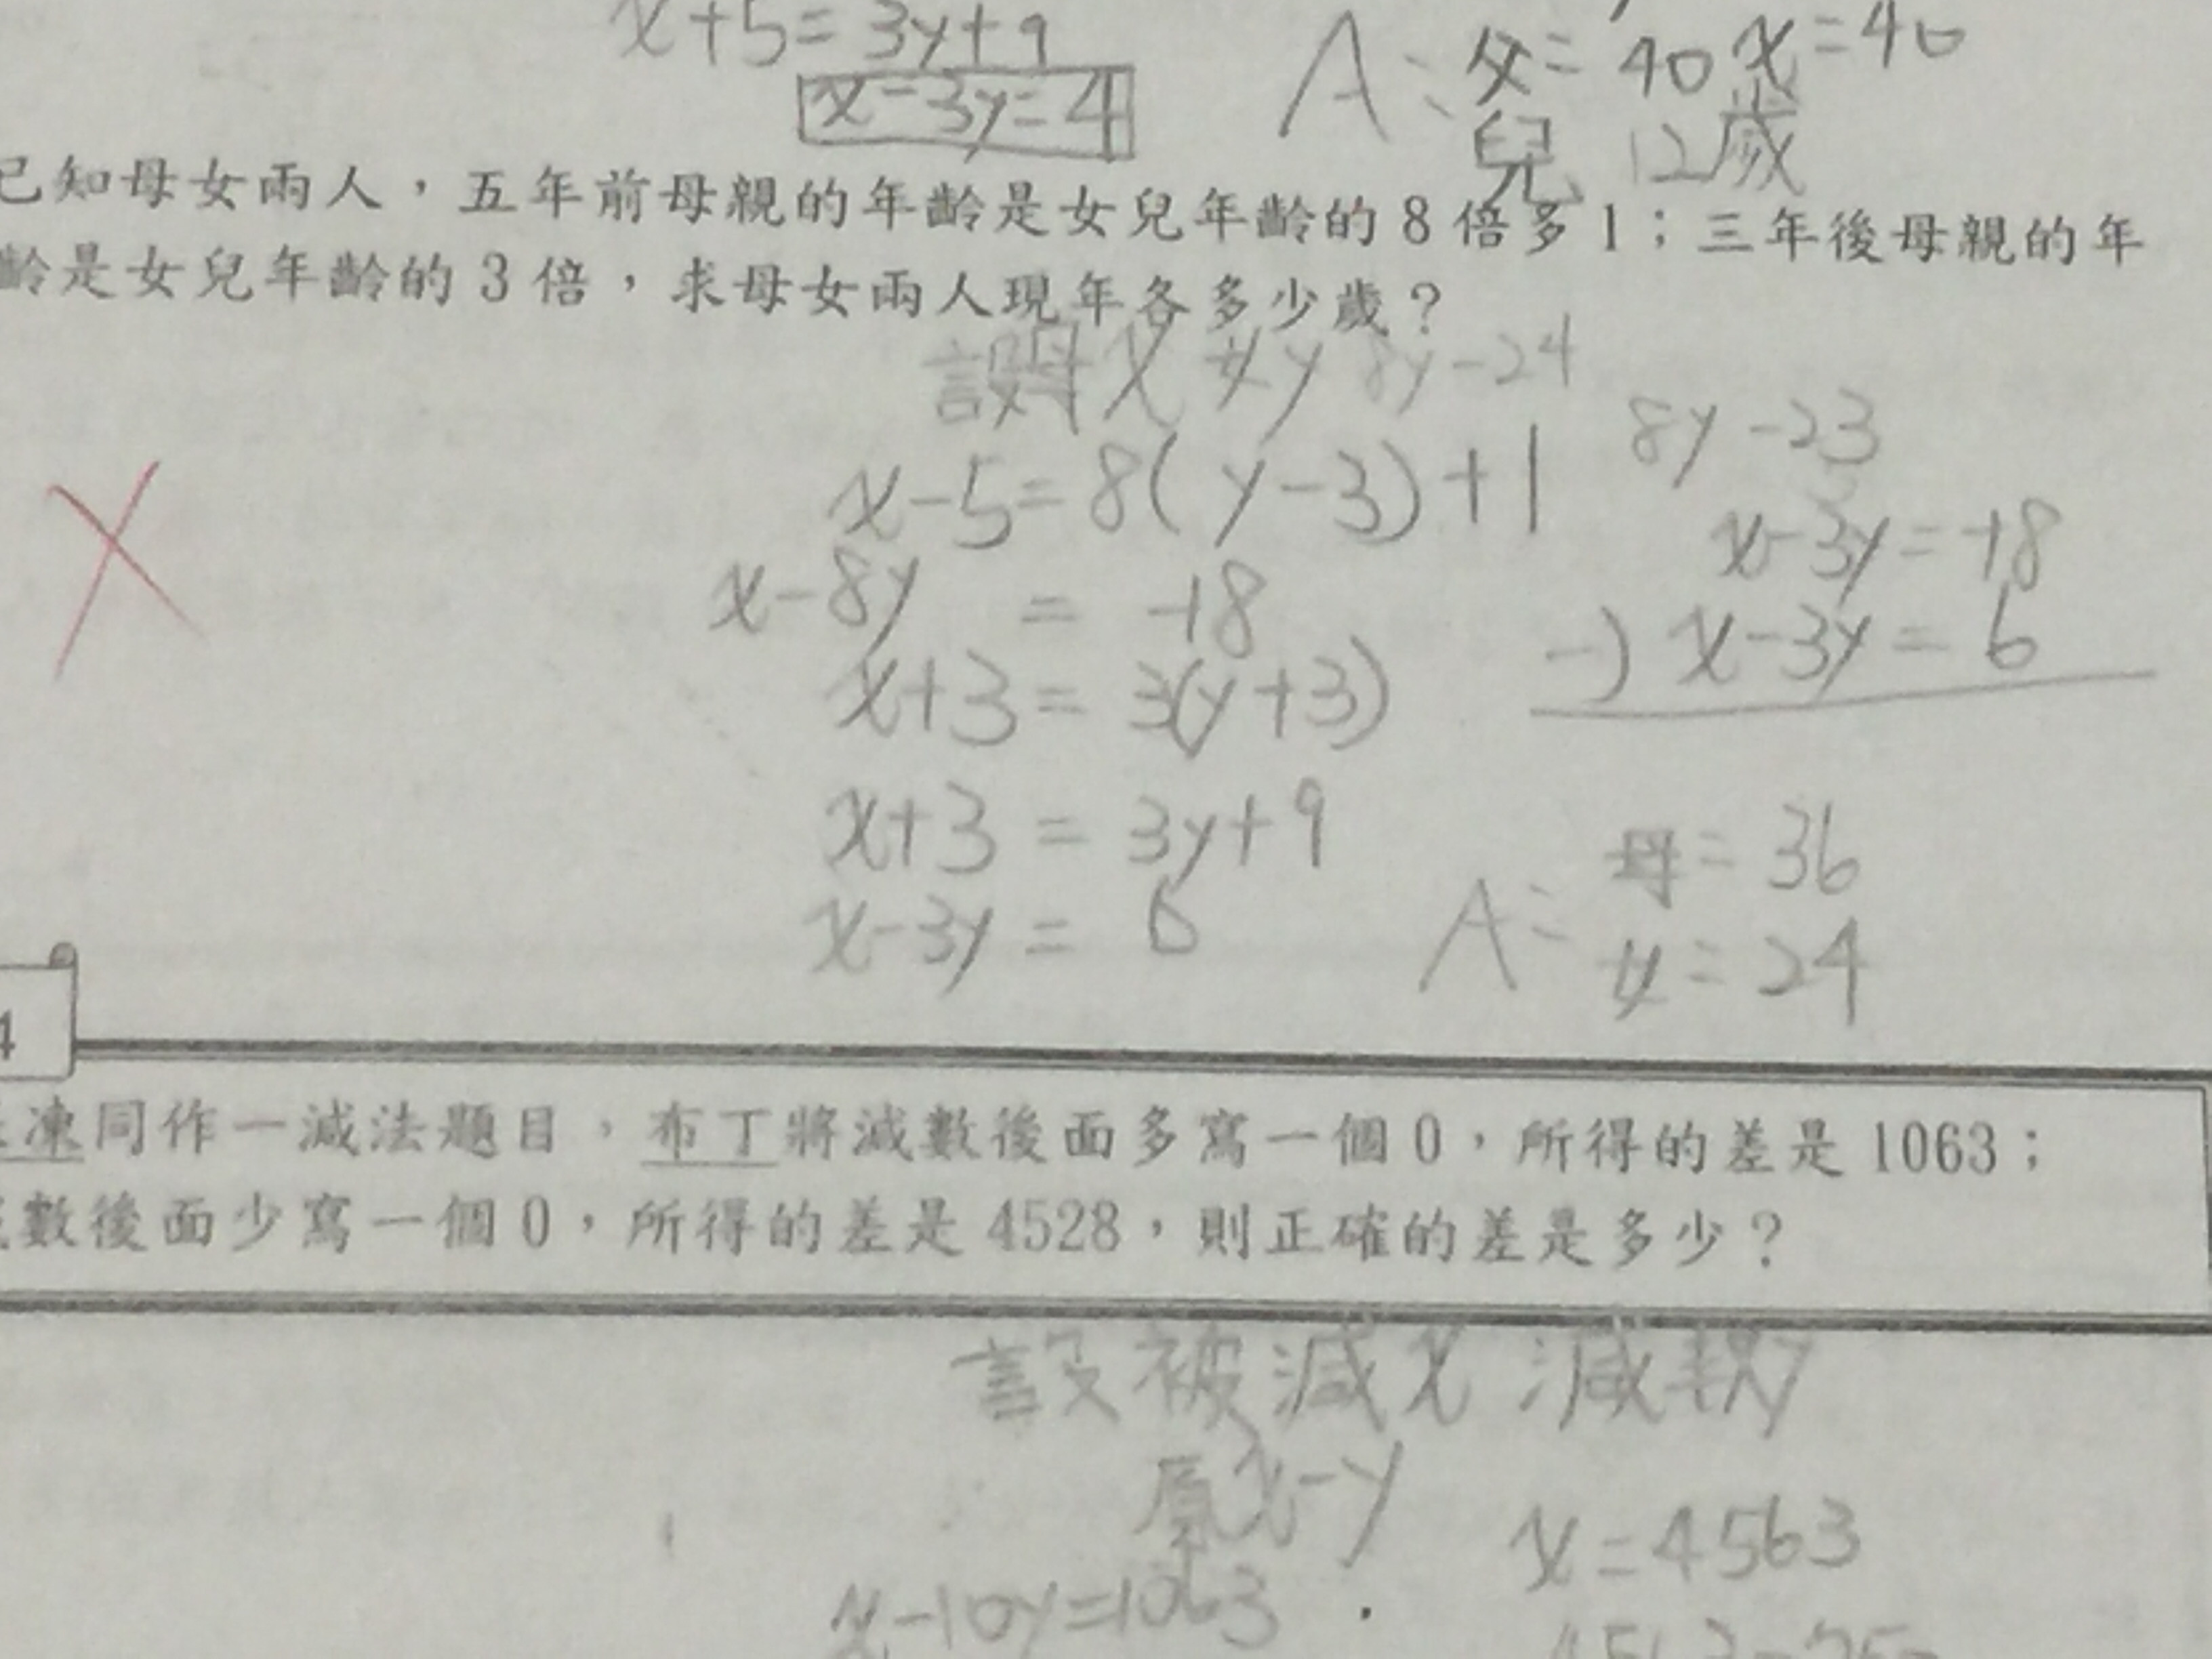 x+5=3y+9
x-3y=4
A: 父=40 x=40
兒 12歲
已知母女兩人，五年前母親的年齡是女兒年齡的8倍多1；三年後母親的年
齡是女兒年齡的3倍，求母女兩人現年各多少歲？
設母x 女y 8y-24
x-5=8(y-3)+1 8y-23
x-8y = -18
x-3y=-18
-) x-3y=6
x+3=3(y+3)
x+3=3y+9
x-3y=6
A: 母=36
女=24
4
凍同作一減法題目，布丁將減數後面多寫一個0，所得的差是1063；
數後面少寫一個0，所得的差是4528，則正確的差是多少？
設被減x 減數y
原x-y
x=4563
x-10y=1063